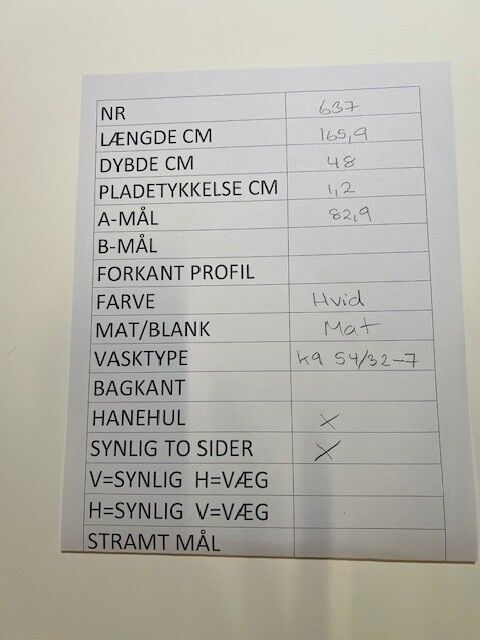 NR 637
LÆNGDE CM 165,9
DYBDE CM 48
PLADETYKKELSE CM 1,2
A-MÅL 82,9
B-MÅL
FORKANT PROFIL
FARVE Hvid
MAT/BLANK Mat
VASKTYPE K9 54/32-7
BAGKANT
HANEHUL X
SYNLIG TO SIDER X
V=SYNLIG H=VÆG
H=SYNLIG V=VÆG
STRAMT MÅL